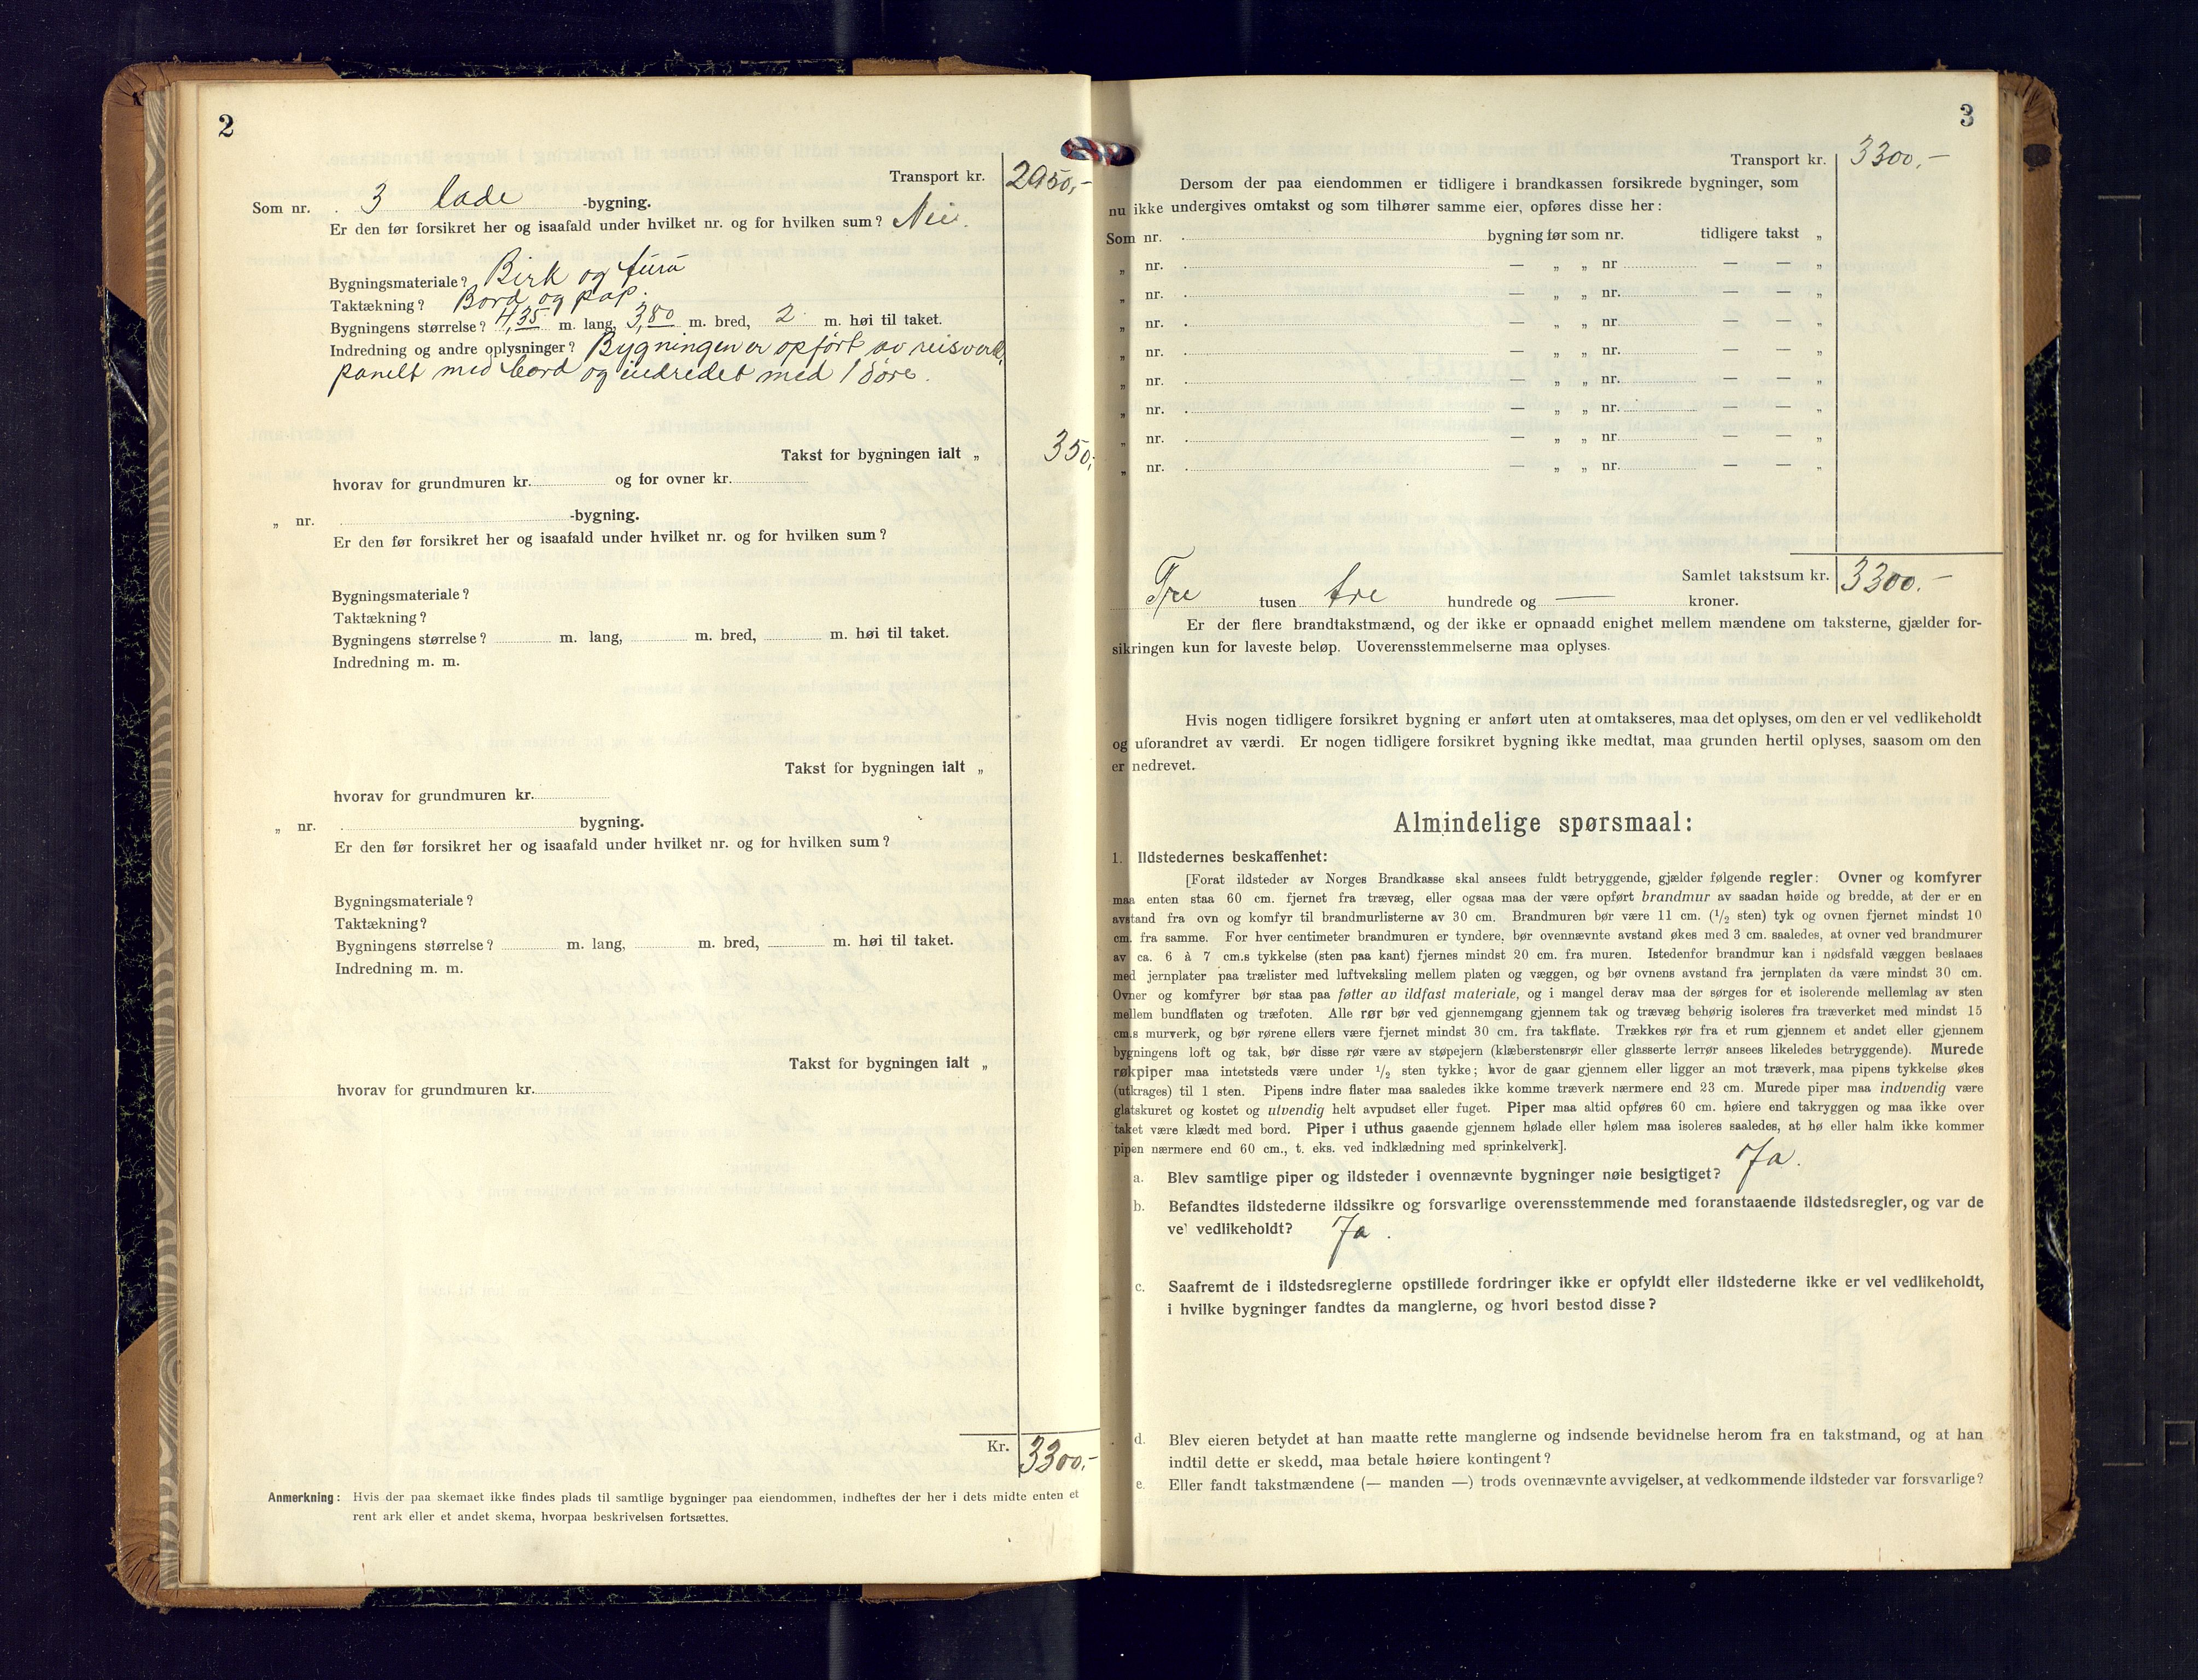 2
Transport kr. 2950,-
Som nr. 3 lade -bygning.
Er den før forsikret her og isaafald under hvilket nr. og for hvilken sum? Nei.
Bygningsmateriale? Birk og furu
Taktækning? Bord og pap.
Bygningens størrelse? 4,35 m. lang, 3,80 m. bred, 2 m. høi til taket.
Indredning og andre oplysninger? Bygningen er opført av reisverk,
panelt med bord og indredet med 1 dör.
Takst for bygningen ialt „ 350,
hvorav for grundmuren kr. og for ovner kr.
„ nr. -bygning.
Er den før forsikret her og isaafald under hvilket nr. og for hvilken sum?
Bygningsmateriale?
Taktækning?
Bygningens størrelse? m. lang, m. bred, m. høi til taket.
Indredning m. m.
Takst for bygningen ialt „
hvorav for grundmuren kr.
„ nr. bygning.
Er den før forsikret her og isaafald under hvilket nr. og for hvilken sum?
Bygningsmateriale?
Taktækning?
Bygningens størrelse? m. lang, m. bred, m. høi til taket.
Indredning m. m.
Takst for bygningen ialt „
hvorav for grundmuren kr.
Kr. 3300,-
Anmerkning: Hvis der paa skemaet ikke findes plads til samtlige bygninger paa eiendommen, indheftes der her i dets midte enten et
rent ark eller et andet skema, hvorpaa beskrivelsen fortsættes.
3
Transport kr. 3300,-
Dersom der paa eiendommen er tidligere i brandkassen forsikrede bygninger, som
nu ikke undergives omtakst og som tilhører samme eier, opføres disse her:
Som nr. bygning før som nr. tidligere takst „
„ nr. — „ „ nr — — „
„ nr. — „ „ nr. — — „
„ nr. — „ „ nr. — — „
„ nr. — „ „ nr. — — „
„ nr. — „ „ nr. — — „
„ nr. — „ „ nr. — — „
„ nr. — „ „ nr. — — „
„ nr. — „ „ nr. — — „
Samlet takstsum kr. 3300.-
Tre tusen tre hundrede og — kroner.
Er der flere brandtakstmænd, og der ikke er opnaadd enighet mellem mændene om taksterne, gjælder for-
sikringen kun for laveste beløp. Uoverensstemmelserne maa oplyses.
Hvis nogen tidligere forsikret bygning er anført uten at omtakseres, maa det oplyses, om den er vel vedlikeholdt
og uforandret av værdi. Er nogen tidligere forsikret bygning ikke medtat, maa grunden hertil oplyses, saasom om den
er nedrevet.
Almindelige spørsmaal:
1. Ildstedernes beskaffenhet:
[Forat ildsteder av Norges Brandkasse skal ansees fuldt betryggende, gjælder følgende regler: Ovner og komfyrer
maa enten staa 60 cm. fjernet fra trævæg, eller ogsaa maa der være opført brandmur av saadan høide og bredde, at der er en
avstand fra ovn og komfyr til brandmurlisterne av 30 cm. Brandmuren bør være 11 cm. (1/2 sten) tyk og ovnen fjernet mindst 10
cm. fra samme. For hver centimeter brandmuren er tyndere, bør ovennævnte avstand økes med 3 cm. saaledes, at ovner ved brandmurer
av ca. 6 à 7 cm.s tykkelse (sten paa kant) fjernes mindst 20 cm. fra muren. Istedenfor brandmur kan i nødsfald væggen beslaaes
med jernplater paa trælister med luftveksling mellem platen og væggen, og bør ovnens avstand fra jernplaten da være mindst 30 cm.
Ovner og komfyrer bør staa paa føtter av ildfast materiale, og i mangel derav maa der sørges for et isolerende mellemlag av sten
mellem bundflaten og træfoten. Alle rør bør ved gjennemgang gjennem tak og trævæg behørig isoleres fra træverket med mindst 15
cm.s murverk, og bør rørene ellers være fjernet mindst 30 cm. fra takflate. Trækkes rør fra et rum gjennem et andet eller gjennem
bygningens loft og tak, bør disse rør være av støpejern (klæberstensrør eller glasserte lerrør ansees likeledes betryggende). Murede
røkpiper maa intetsteds være under 1/2 sten tykke; hvor de gaar gjennem eller ligger an mot træverk, maa pipens tykkelse økes
(utkrages) til 1 sten. Pipens indre flater maa saaledes ikke komme træverk nærmere end 23 cm. Murede piper maa indvendig være
glatskuret og kostet og utvendig helt avpudset eller fuget. Piper maa altid opføres 60 cm. høiere end takryggen og maa ikke over
taket være klædt med bord. Piper i uthus gaaende gjennem hølade eller hølem maa isoleres saaledes, at hø eller halm ikke kommer
pipen nærmere end 60 cm., t. eks. ved indklædning med sprinkelverk].
a. Blev samtlige piper og ildsteder i ovennævnte bygninger nøie besigtiget? Ja.
b. Befandtes ildstederne ildssikre og forsvarlige overensstemmende med foranstaaende ildstedsregler, og var de
vel vedlikeholdt? Ja.
c. Saafremt de i ildstedsreglerne opstillede fordringer ikke er opfyldt eller ildstederne ikke er vel vedlikeholdt,
i hvilke bygninger fandtes da manglerne, og hvori bestod disse?
d. Blev eieren betydet at han maatte rette manglerne og indsende bevidnelse herom fra en takstmand, og at han
indtil dette er skedd, maa betale høiere kontingent?
e. Eller fandt takstmændene (— manden —) trods ovennævnte avvigelser, at vedkommende ildsteder var forsvarlige?